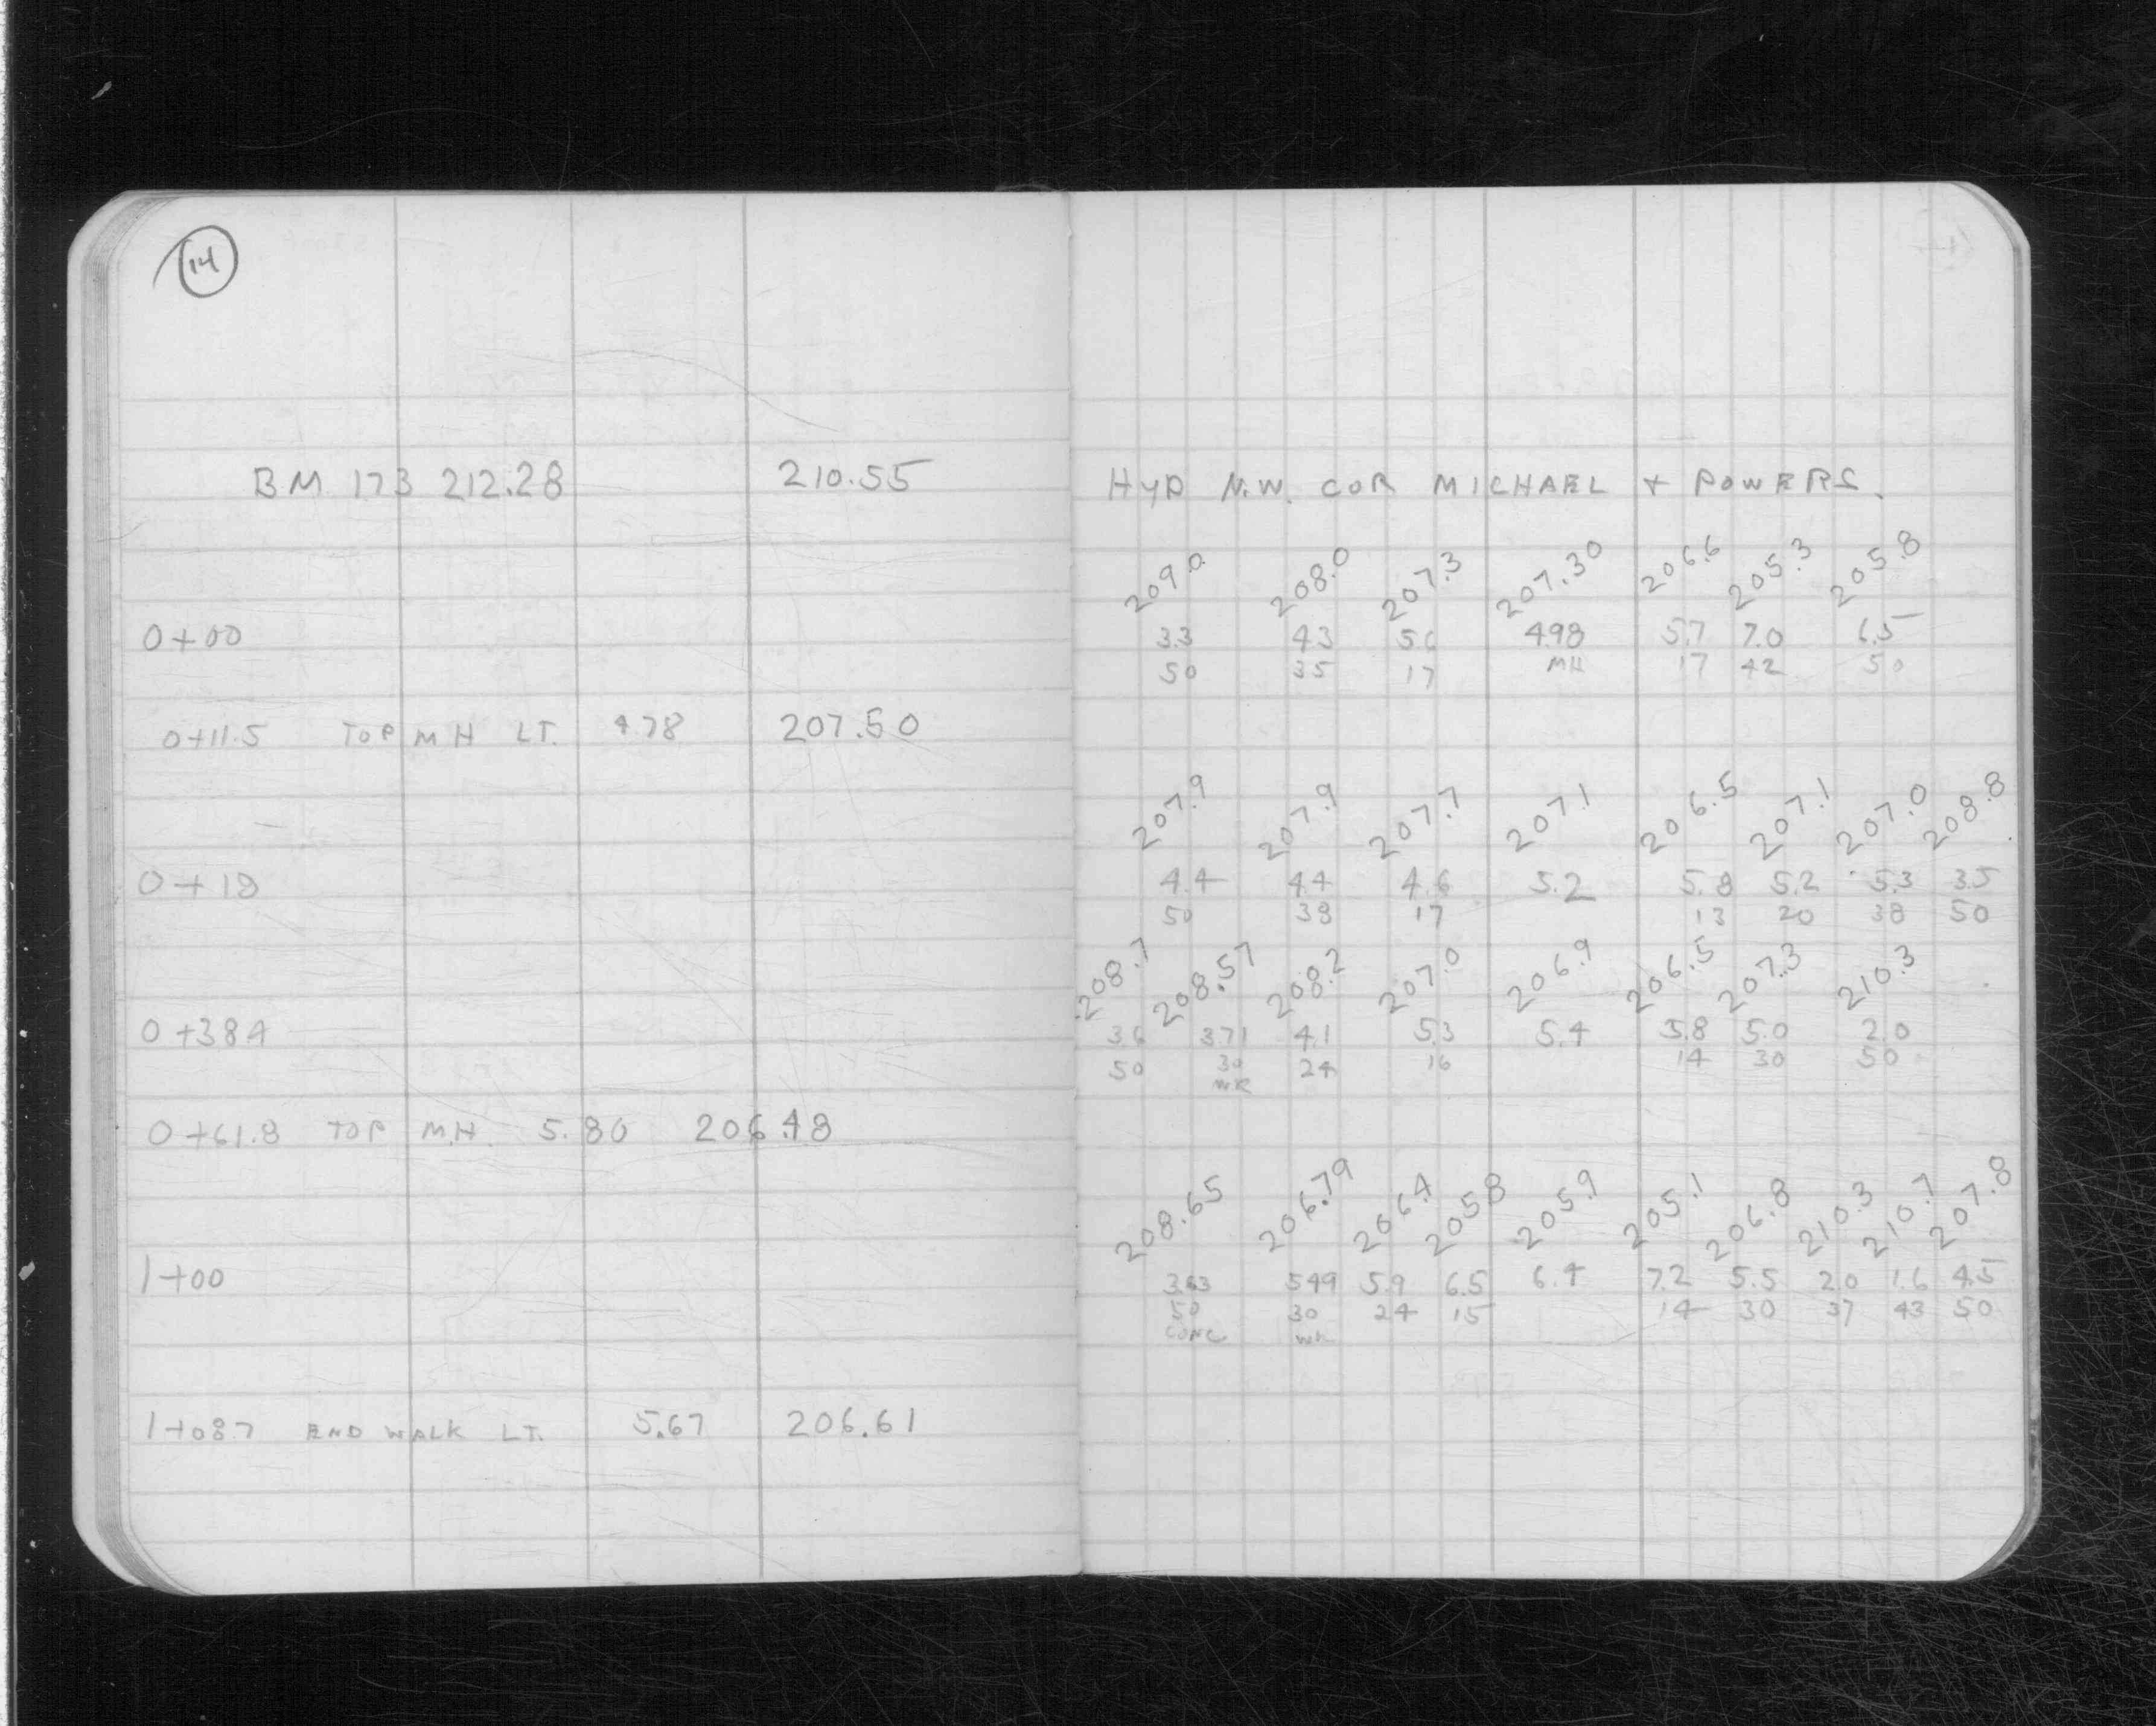 14
BM 1.73 212.28 210.55 HYD N.W. COR MICHAEL + POWERS.
209.0 208.0 207.3 207.30 206.6 205.3 205.8
0+00 3.3 4.3 5.0 4.98 5.7 7.0 6.5
50 35 17 MH 17 42 50
0+11.5 TOP MH LT. 4.78 207.50
207.9 207.9 207.7 207.1 206.5 207.1 207.0 208.8
0+18 4.4 4.4 4.6 5.2 5.8 5.2 5.3 3.5
50 38 17 13 20 38 50
208.7 208.57 208.2 207.0 206.9 206.5 207.3 210.3
0+38.4 3.6 3.71 4.1 5.3 5.4 5.8 5.0 2.0
50 30 24 16 14 30 50
WK
0+61.8 TOP M.H. 5.80 206.48
208.65 206.79 206.4 205.8 205.9 205.1 206.8 210.3 210.7 207.8
1+00 3.63 5.49 5.9 6.5 6.4 7.2 5.5 2.0 1.6 4.5
50 30 24 15 14 30 37 43 50
CONC WK
1+08.7 END WALK LT. 5.67 206.61